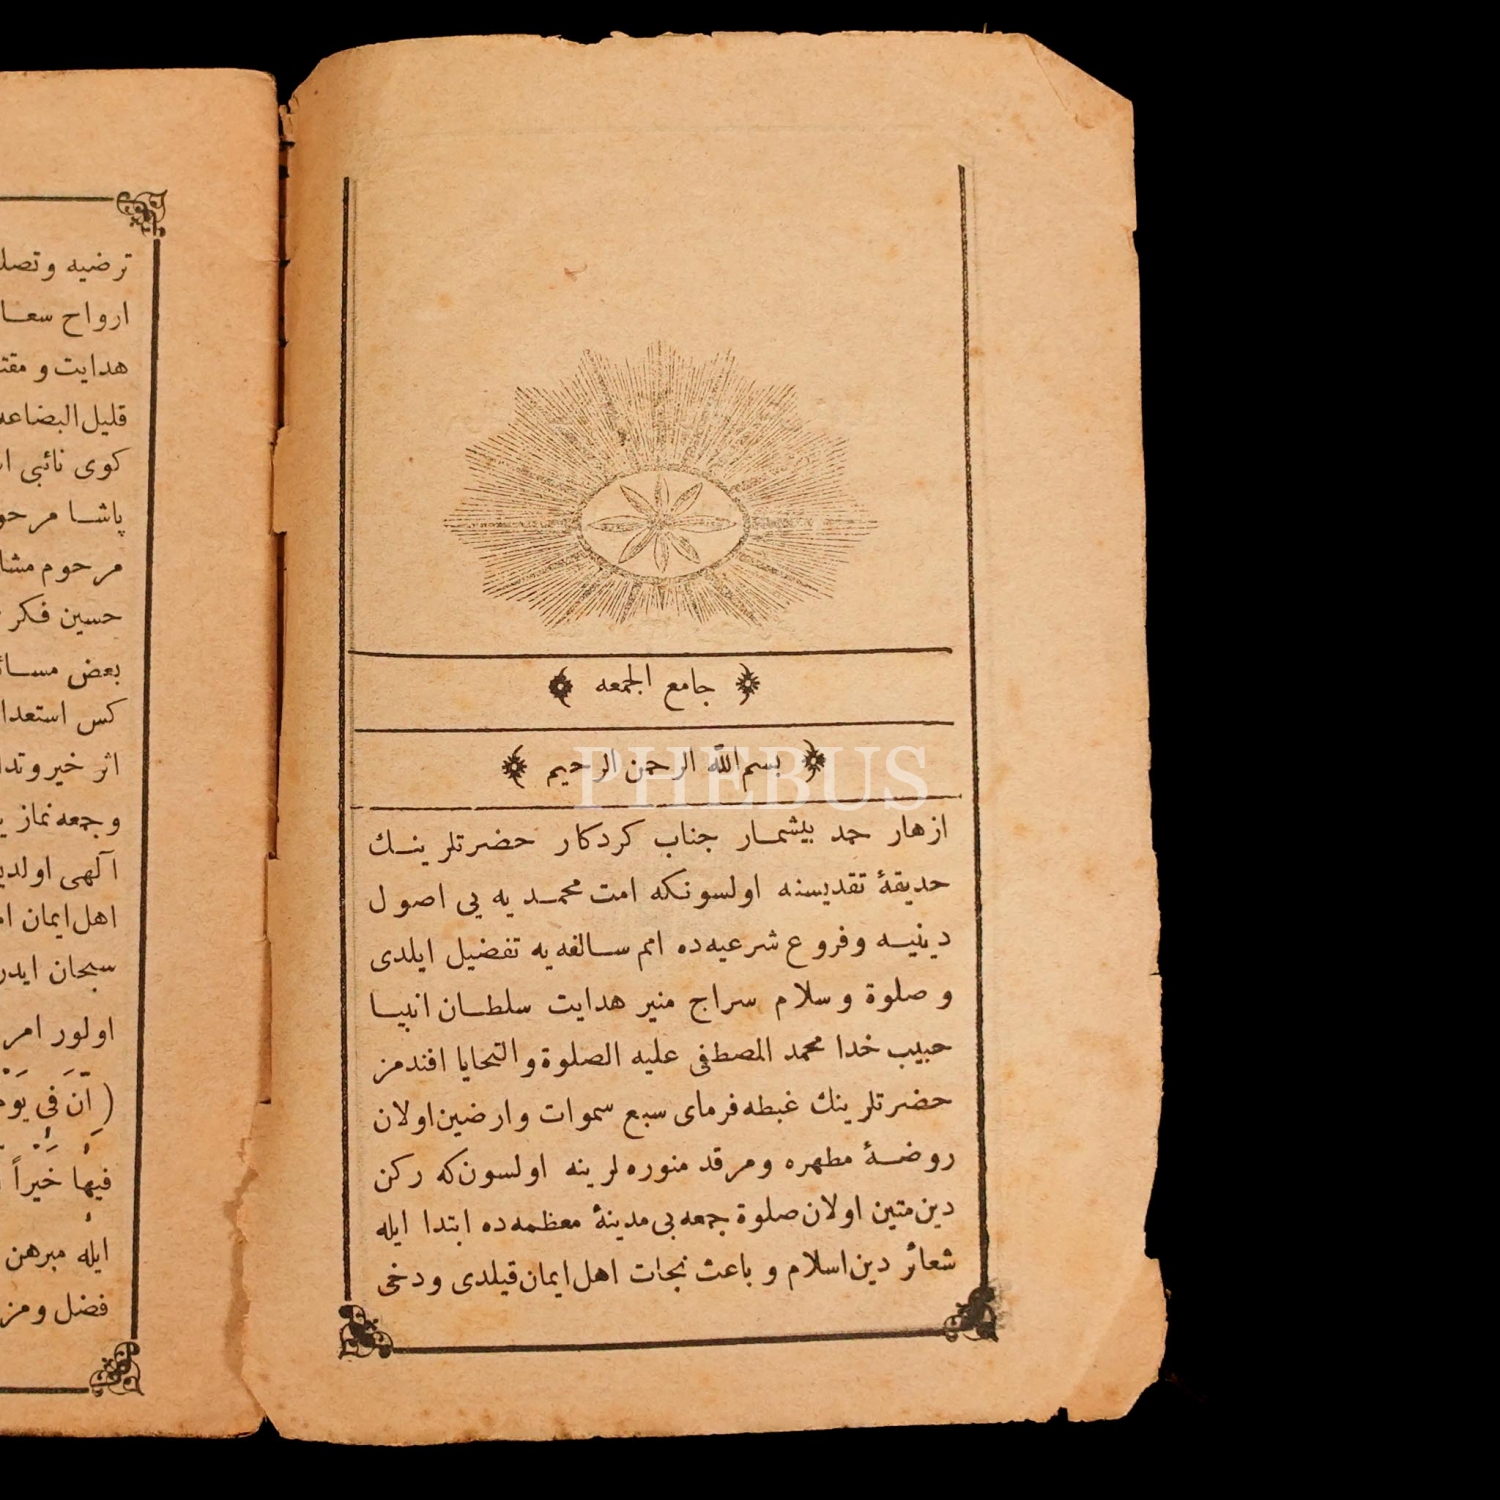 جامع الجمعه
بسم الله الرحمن الرحيم
ازهار حمد بيشمار جناب كردكار حضرتلرينك
حديقهٔ تقديسنه اولسونكه امت محمديه يى اصول
دينيه وفروع شرعيه‌ده امم سالفه‌يه تفضيل ايلدى
و صلوة وسلام سراج منير هدايت سلطان انبيا
حبيب خدا محمد المصطفى عليه الصلوة والتحايا افندمز
حضرتلرينك غبطه‌فرماى سبع سموات وارضين اولان
روضهٔ مطهره ومرقد منوره لرينه اولسون‌كه ركن
دين متين اولان صلوة جمعه‌يى مدينهٔ معظمه‌ده ابتدا ايله
شعائر دين اسلام و باعث نجات اهل ايمان قيلدى ودخى
ترضيه وتصل
ارواح سعا
هدايت و مقت
قليل البضاعه
كوى نائبى ا
پاشا مرحو
مرحوم مشا
حسين فكر
بعض مسا
كس استعدا
اثر خير وتدا
وجمعه نماز
آلهى اولدي
اهل ايمان ا
سبحان ايدر
اولور امر
(اِنَّ فِى يَوْم
فيها خَيْراً
ايله مبرهن
فضل ومز
PHEBUS